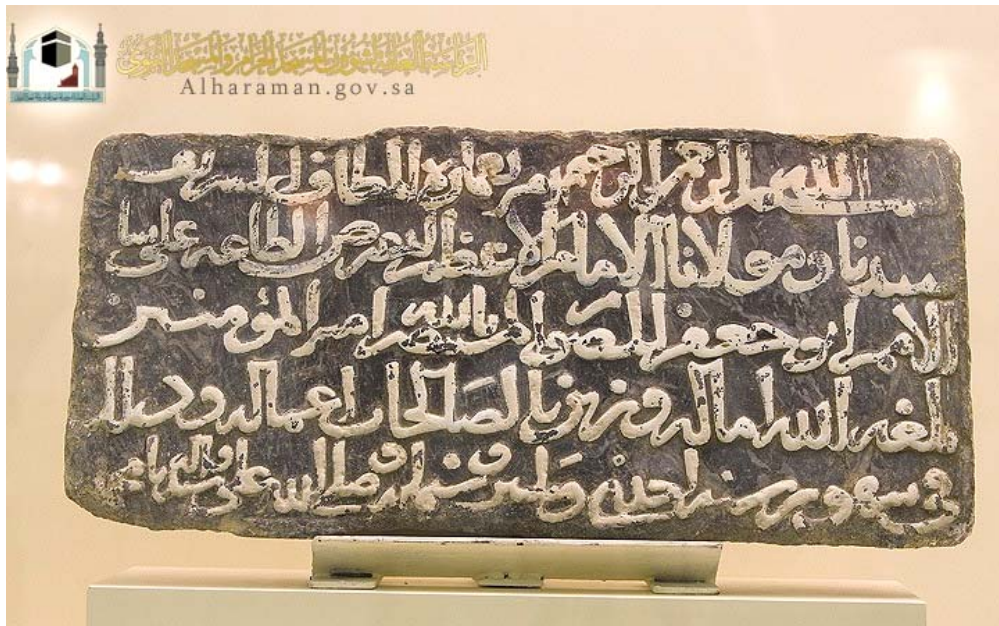 الرئاسة العامة لشؤون المسجد الحرام والمسجد النبوي
Alharaman.gov.sa
بسم الله الرحمن الرحيم امر بعمارة المطاف الشريف
سيدنا ومولانا الامام الاعظم المفترض الطاعة على سائر
الامم ابو جعفر المنصور المستنصر بالله امير المؤمنين
بلغه الله اماله وزين بالصالحات اعماله وذلك
في شهور سنة احدى وثلثين وستمائة وصلى الله على